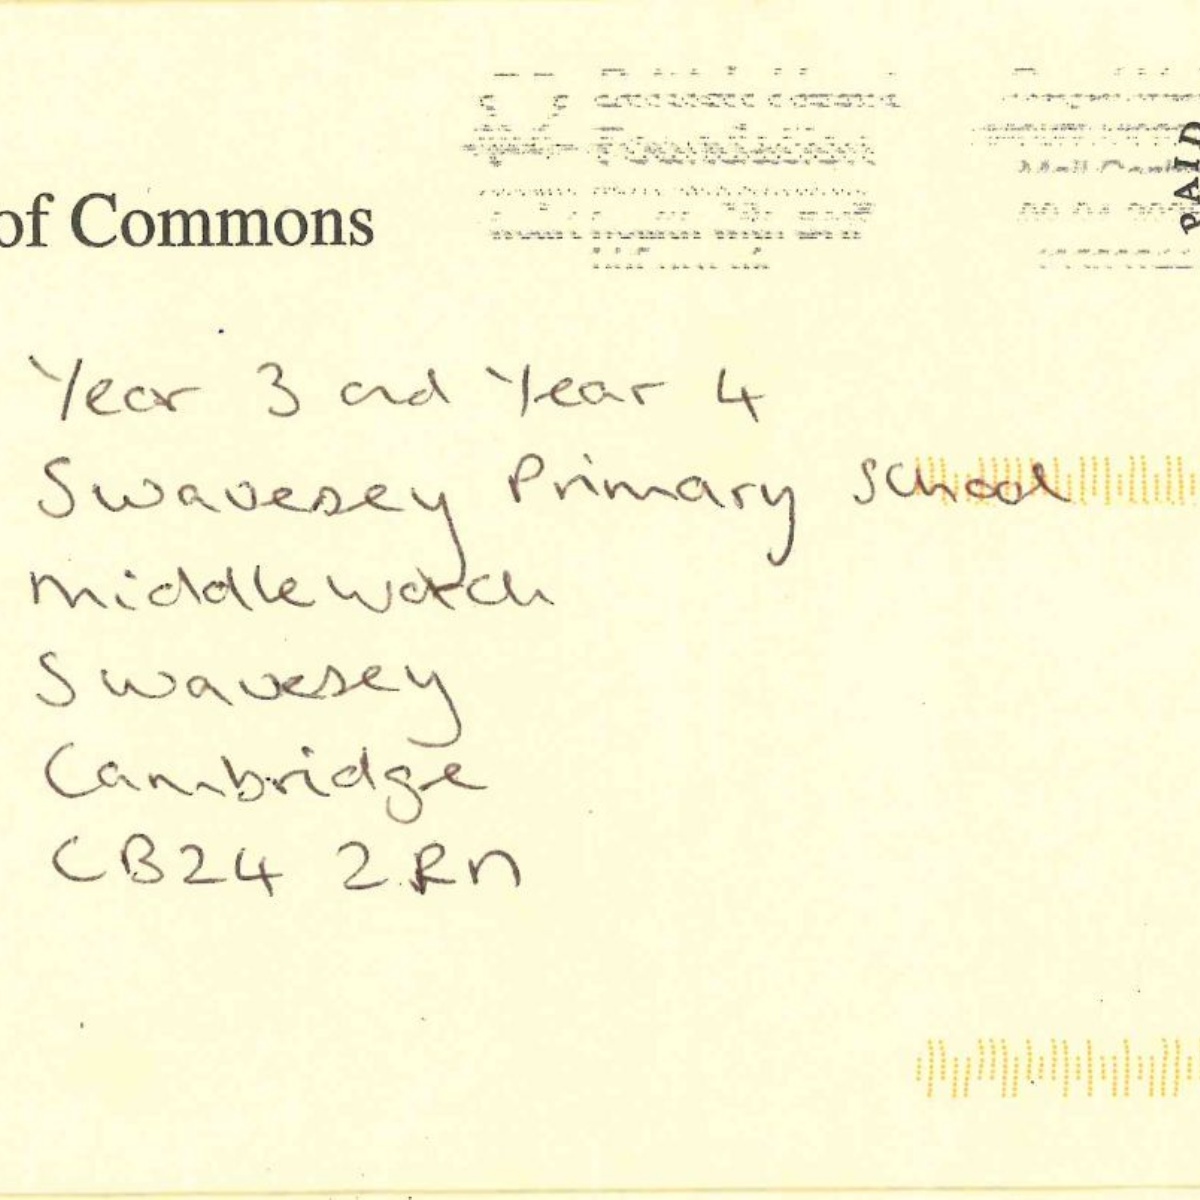 of Commons
Foundation
PAID
Year 3 and Year 4
Swavesey Primary School
Middlewatch
Swavesey
Cambridge
CB24 2RN